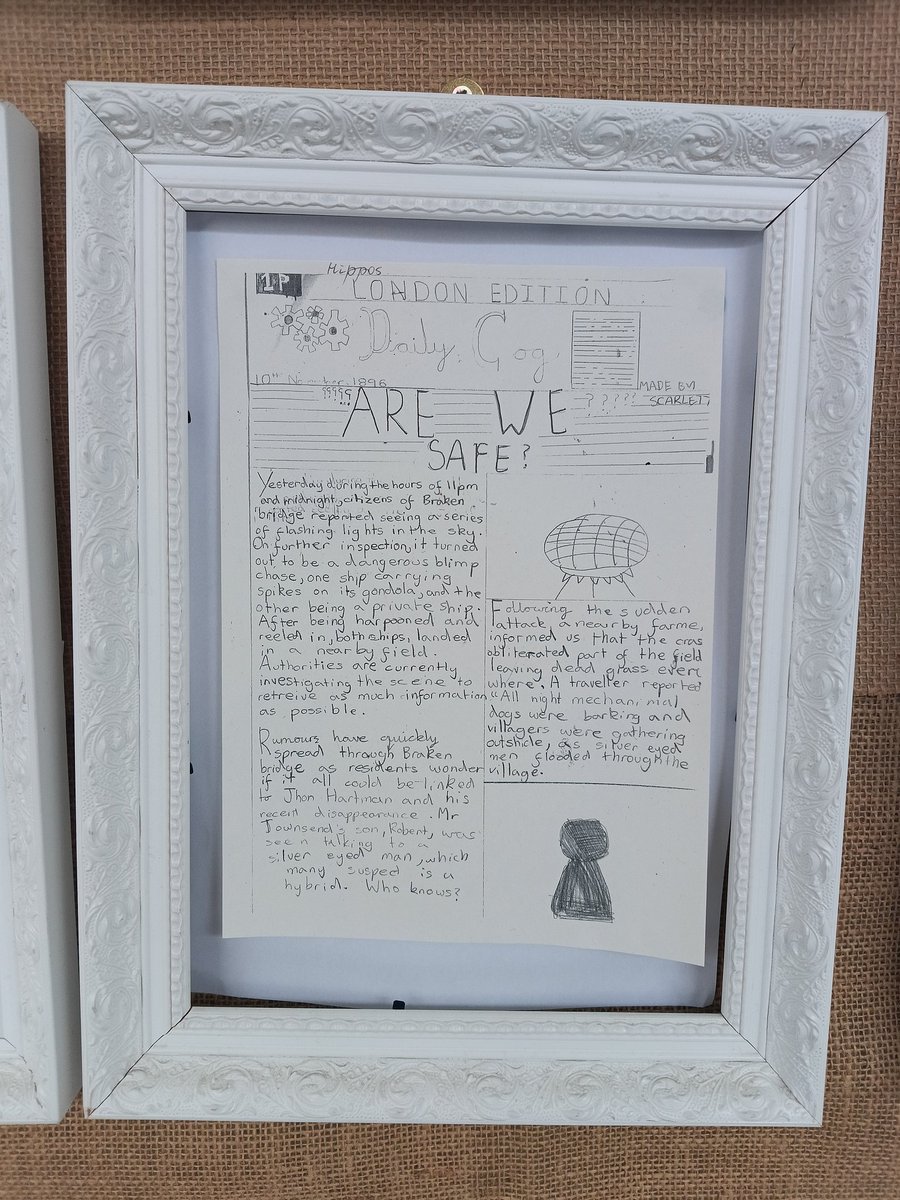 Hippos
1P
LONDON EDITION
Daily Cog
10th November 1896
MADE BY
SCARLETT
?????
?????
ARE WE
SAFE?
Yesterday during the hours of 11pm
and midnight, citizens of Braken
bridge reported seeing a series
of flashing lights in the sky.
On further inspection, it turned
out to be a dangerous blimp
chase, one ship carrying
spikes on its gondola, and the
other being a private ship.
After being harpooned and
reeled in, both ships, landed
in a nearby field.
Authorities are currently
investigating the scene to
retreive as much information
as possible.
Rumours have quickly
spread through Braken
bridge as residents wonder
if it all could be linked
to Jhon Hartman and his
recent disappearance. Mr
Townsend's son, Robert, was
seen talking to a
silver eyed man, which
many suspect is a
hybrid. Who knows?
Following the sudden
attack, a nearby farme
informed us that the cras
obliterated part of the field
leaving dead grass every
where. A traveller reported
"All night mechanimal
dogs were barking and
villagers were gathering
outshide, as silver eyed
men flooded through the
village.